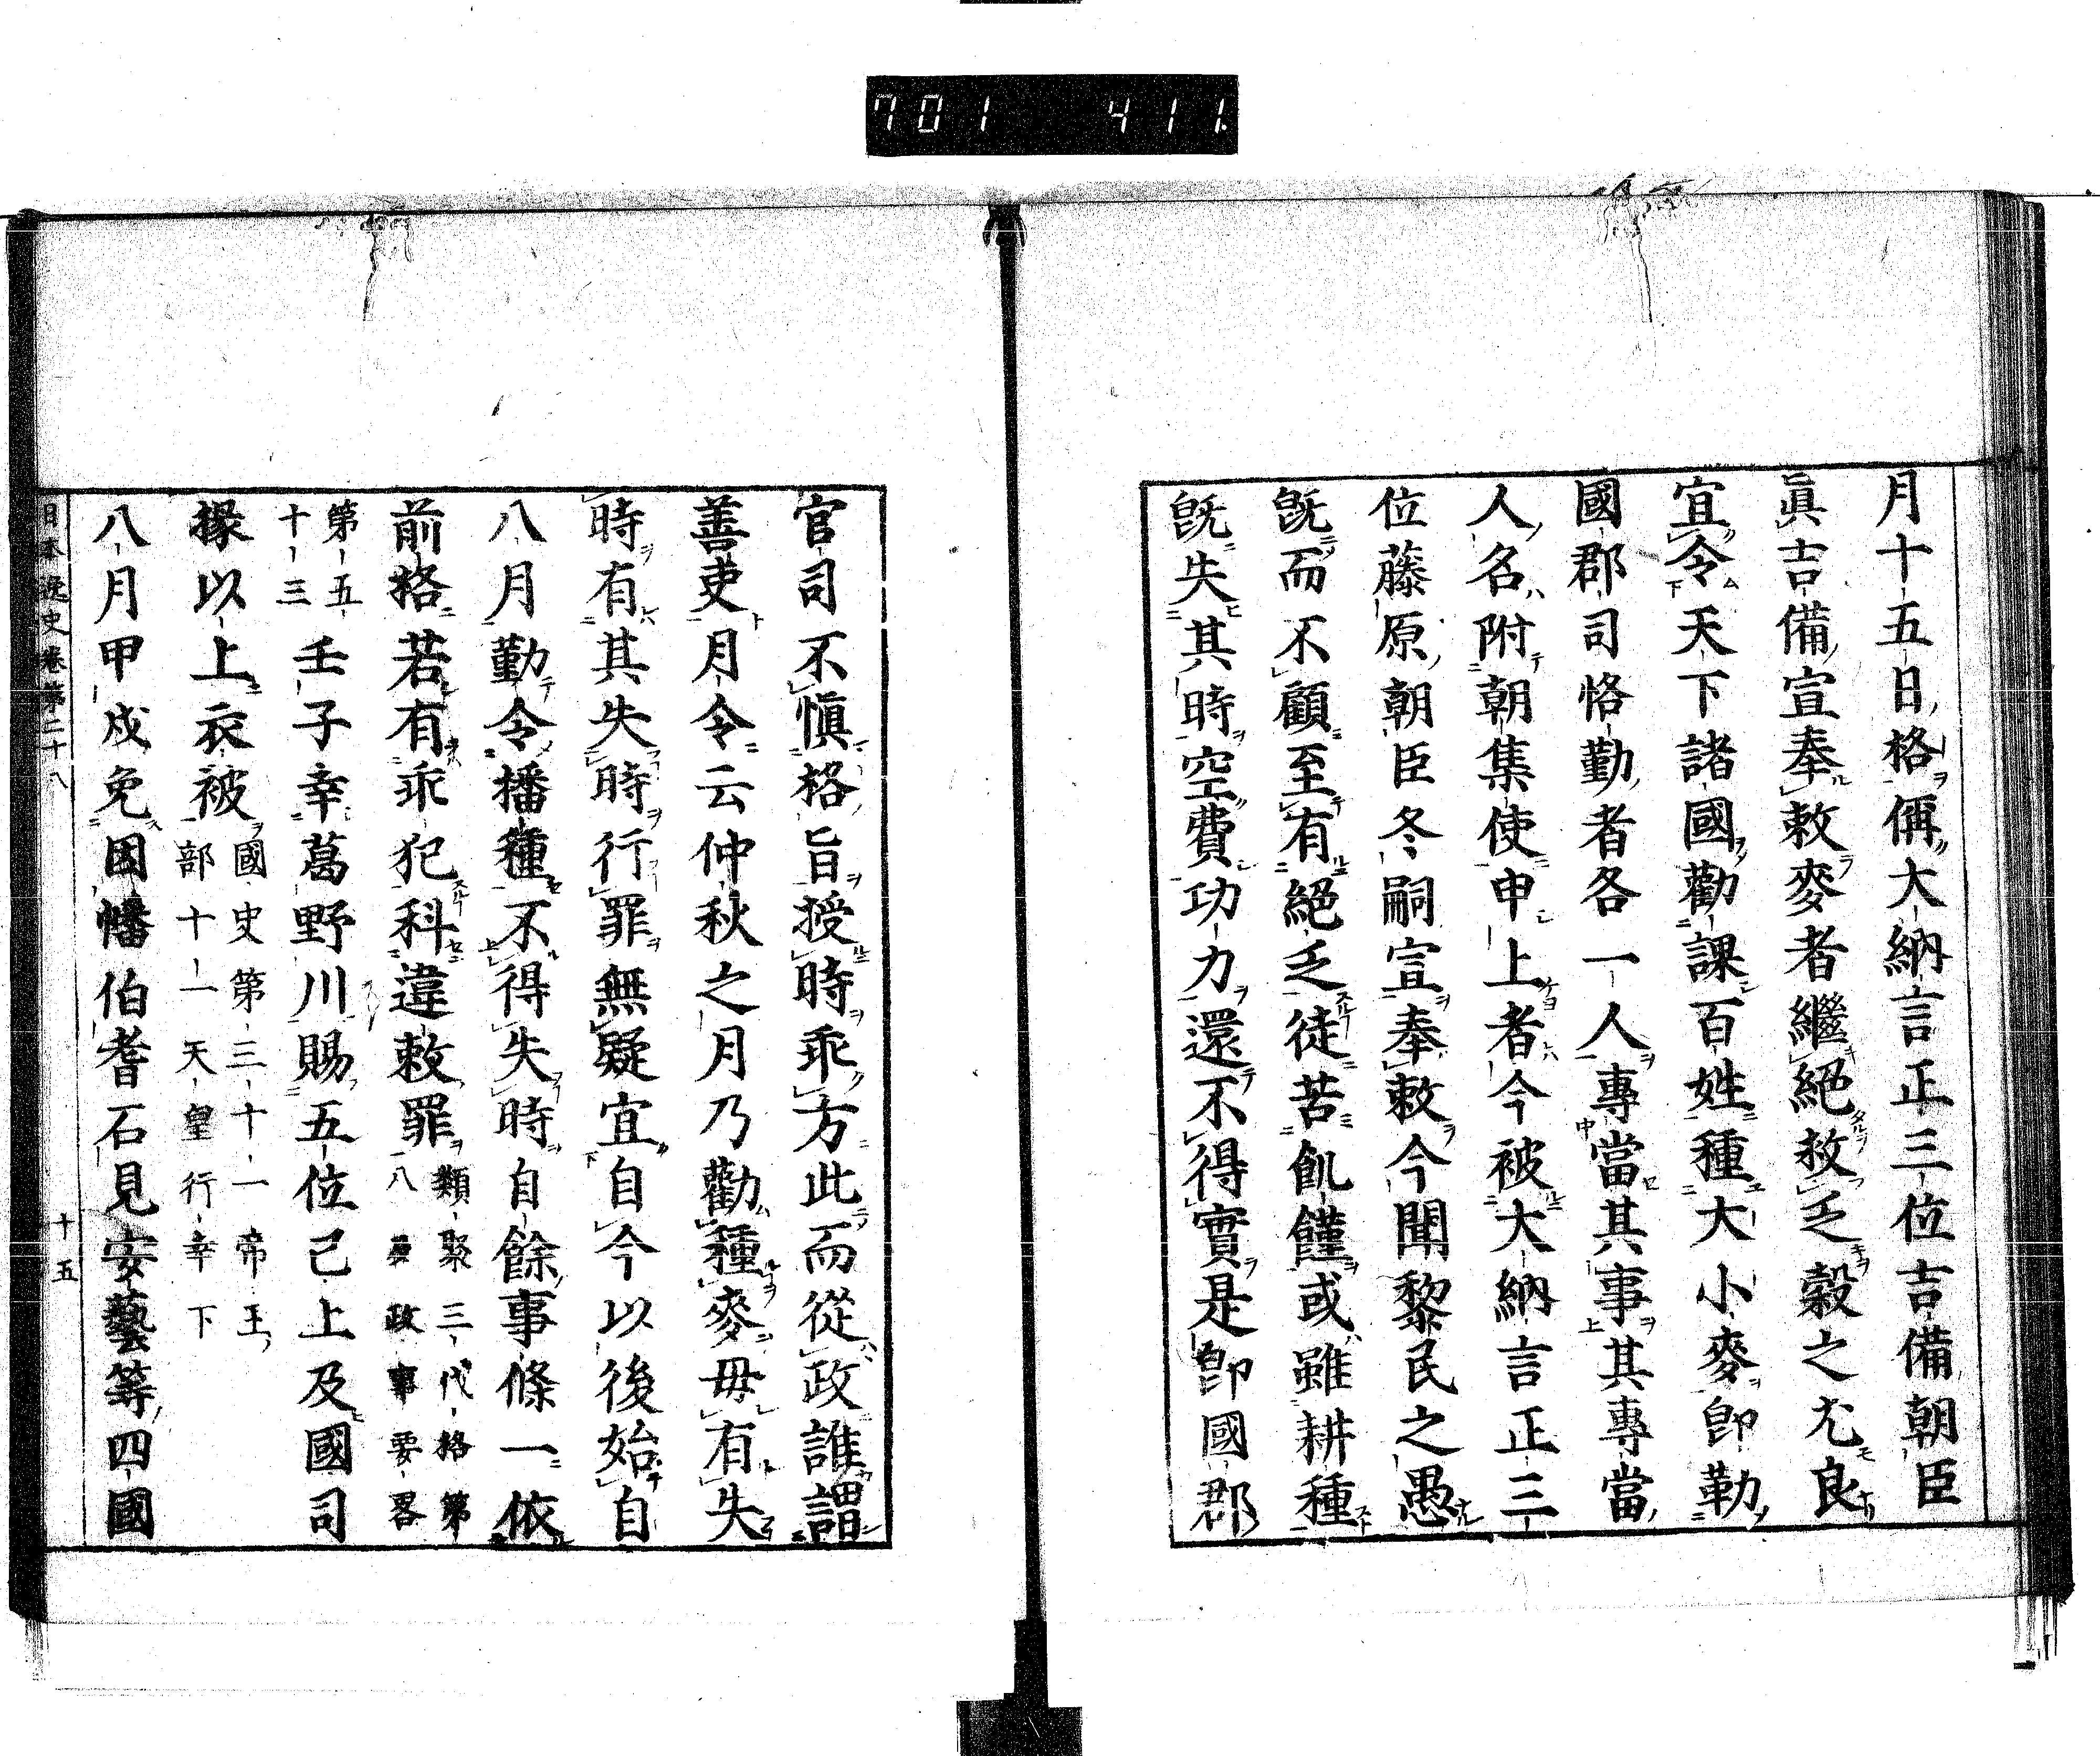 701 411
月十五日格偁大納言正三位吉備朝臣
眞吉備宣奉敕麥者繼絕救乏穀之尤良
宜令天下諸國勸課百姓種大小麥卽勒
國郡司恪勤者各一人專當其事其專當
人名附朝集使申上者今被大納言正三
位藤原朝臣冬嗣宣奉敕今聞黎民之愚
旣而不顧至有絕乏徒苦飢饉或雖耕種
旣失其時空費功力還不得實是卽國郡
官司不愼格旨授時乖方此而從政誰謂
善吏月令云仲秋之月乃勸種麥毋有失
時有其失時行罪無疑宜自今以後始自
八月勤令播種不得失時自餘事條一依
前格若有乖犯科違敕罪類聚三代格第
八要政事要畧
第五
十三
壬子幸葛野川賜五位己上及國司
掾以上衣被國史第三十一帝王
部十一天皇行幸下
八月甲戌免因幡伯耆石見安藝等四國
日本逸史卷第二十八
十五